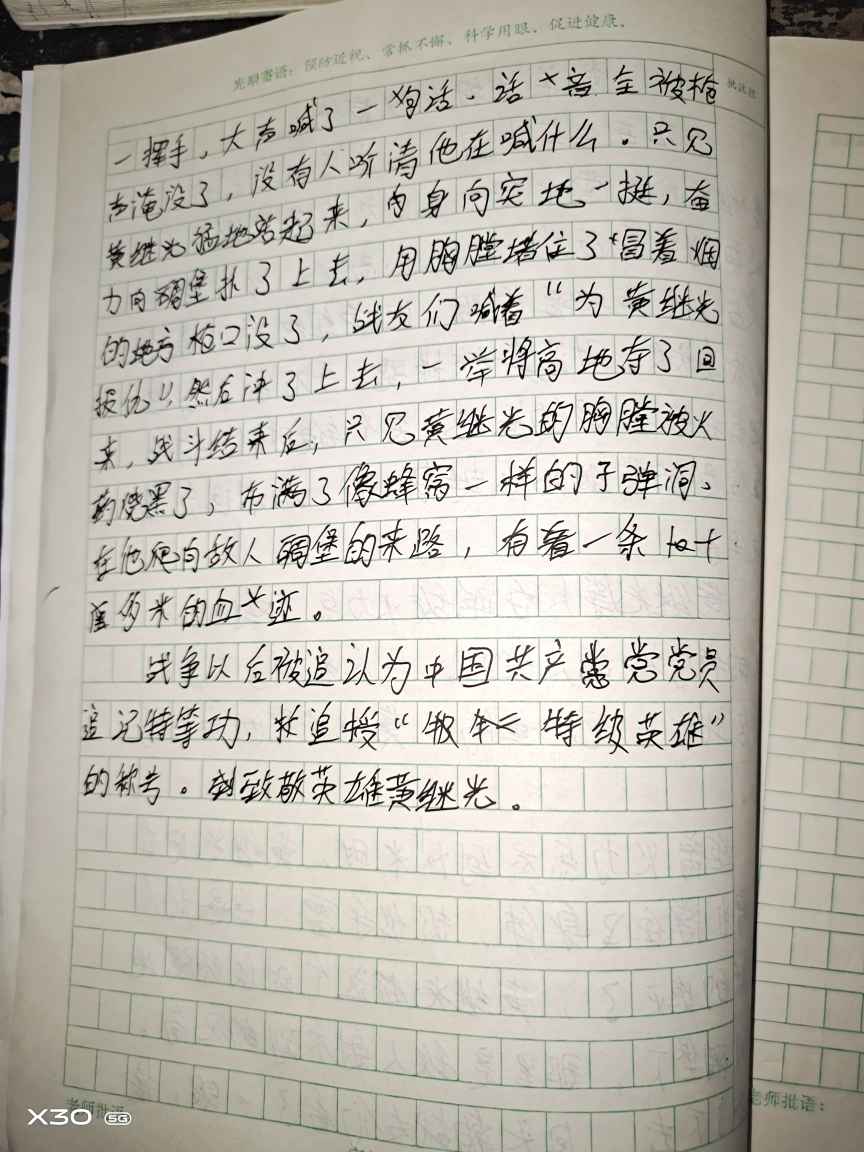 光明寄语：预防近视、常抓不懈、科学用眼、促进健康。
一挥手，大声喊了一句话。话音全被枪
声淹没了，没有人听清他在喊什么。只见
黄继光猛地站起来，向身向突地一挺，奋
力向碉堡扑了上去，用胸膛堵住了冒着烟
的地方枪口没了，战友们喊着“为黄继光
报仇”，然后冲了上去，一举将高地夺了回
来，战斗结束后，只见黄继光的胸膛被火
药烧黑了，布满了像蜂窝一样的子弹洞、
在他爬向敌人碉堡的来路，有着一条十
多米的血迹。
战争以后被追认为中国共产党党员
追记特等功，并追授“特级英雄”
的称号。致敬英雄黄继光。
老师批语
老师批语：
X30 5G